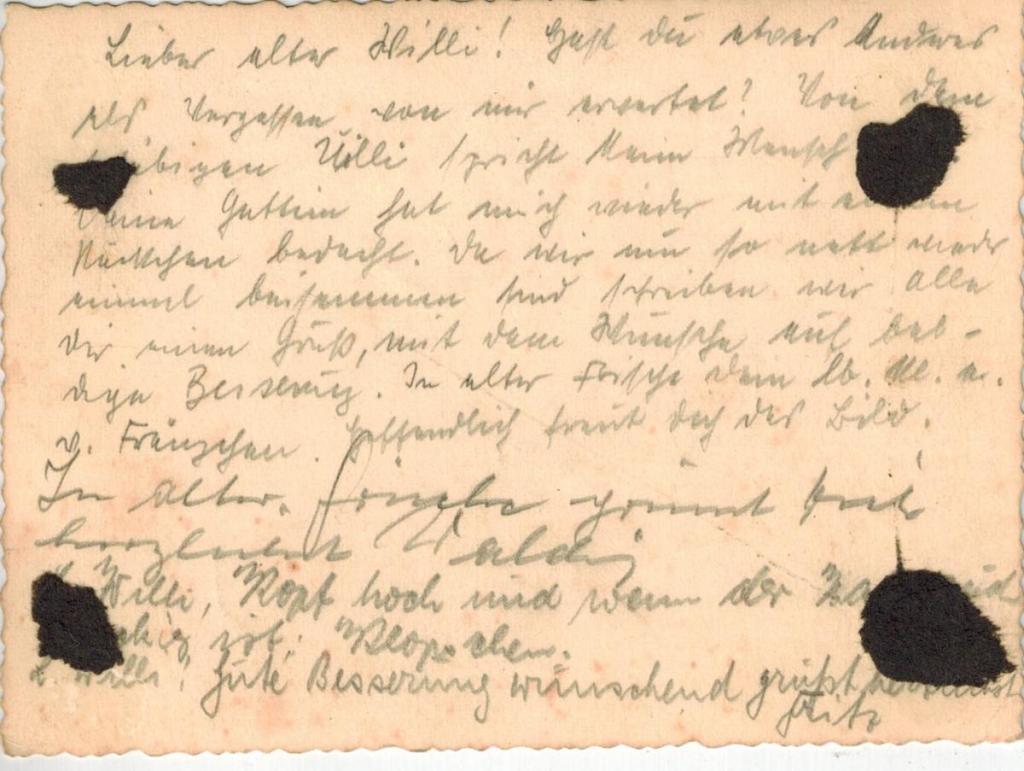 Lieber alter Willi! Hast du etwas Anderes
als Vergessen von mir erwartet? Von dem
Willi spricht kein Mensch
Deine Gattin hat mich wieder mit
bedacht. Da wir nun so nett wieder
einmal beisammen sind schreiben wir alle
dir einen Gruß, mit dem Wunsche auf bal-
dige Besserung. In alter Frische dein lb.
v. Fränzchen. Hoffendlich freut dich das Bild.
In alter Frische grüsst dich
Waldi
Willi, Kopf hoch und wenn der
ist. Klopschen.
L. Willi! Gute Besserung wünschend grüßt
Fritz